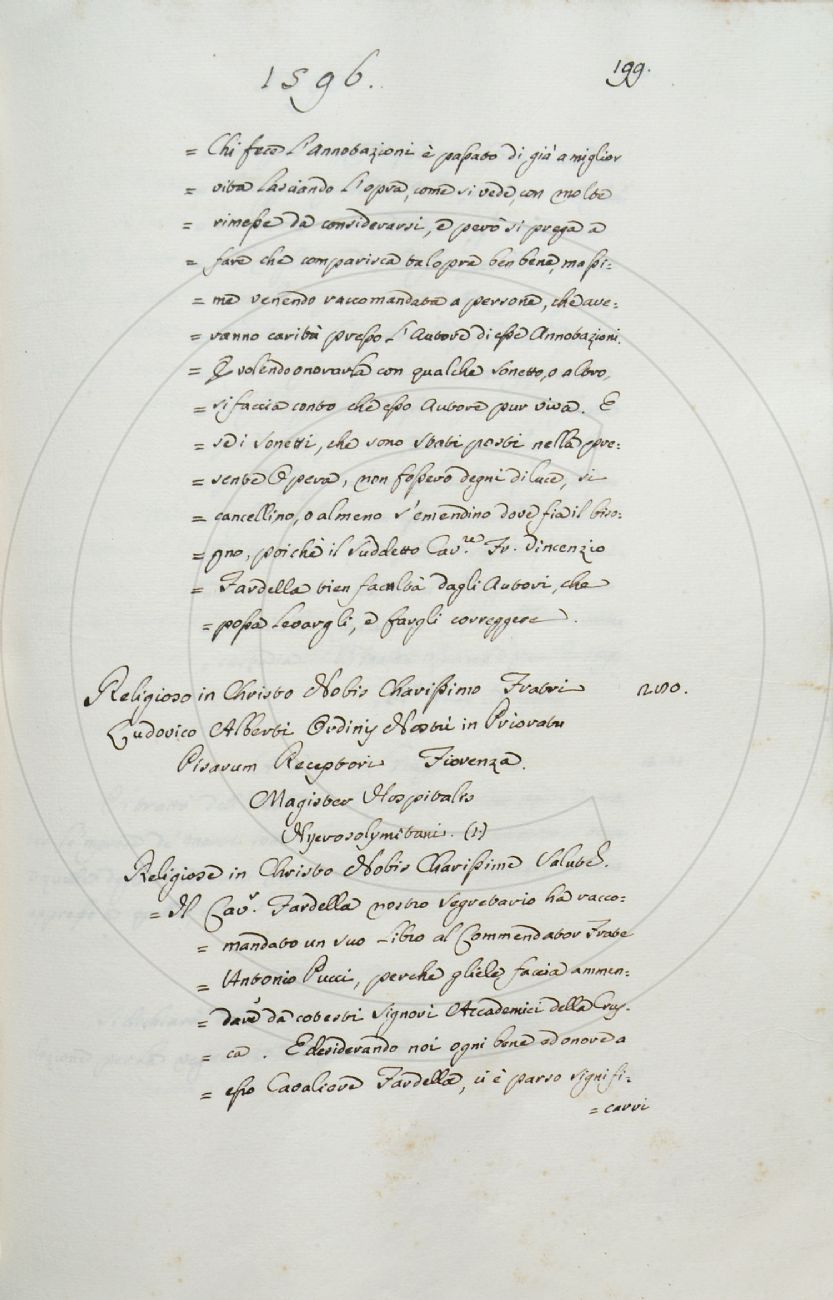 1596.
199.
= Chi fece l'Annotazioni è passato di già a miglior
= vita lasciando l'opra, come si vede, con molte
= rimesse da considerarsi, e però si prega a
= fare che comparisca tal opra ben bene, massi=
= me venendo raccomandata a persone, che ave=
= ranno carità presso l'Autore di esse Annotazioni.
= E volendo onorarla con qualche sonetto, o altro,
= si faccia conto che esso Autore pur viva. E
= se i sonetti, che sono stati posti nella pre=
= sente Opera, non fossero degni di luce, si
= cancellino, o almeno s'emendino dove fia il biso=
= gno, poichè il suddetto Cav.re Fr. Vincenzio
= Fardella tien facultà dagli Autori, che
= possa levargli, e fargli correggere.
Religioso in Christo Nobis Charissimo Fratri
280.
Ludovico Alberti Ordinis Nostri in Prioratu
Pisarum Receptori Fiorenza.
Magister Hospitalis
Hyerosolymitani. (1)
Religiose in Christo Nobis Charissime Salute.
= Il Cav.r Fardella nostro Segretario ha racco=
= mandato un suo Libro al Commendator Frate
= Antonio Pucci, perche gliele faccia ammen=
= dare da cotesti Signori Accademici della Crus=
= ca. E desiderando noi ogni bene ed onore a
= esso Cavaliere Fardella, ci è parso signifi=
= carvi